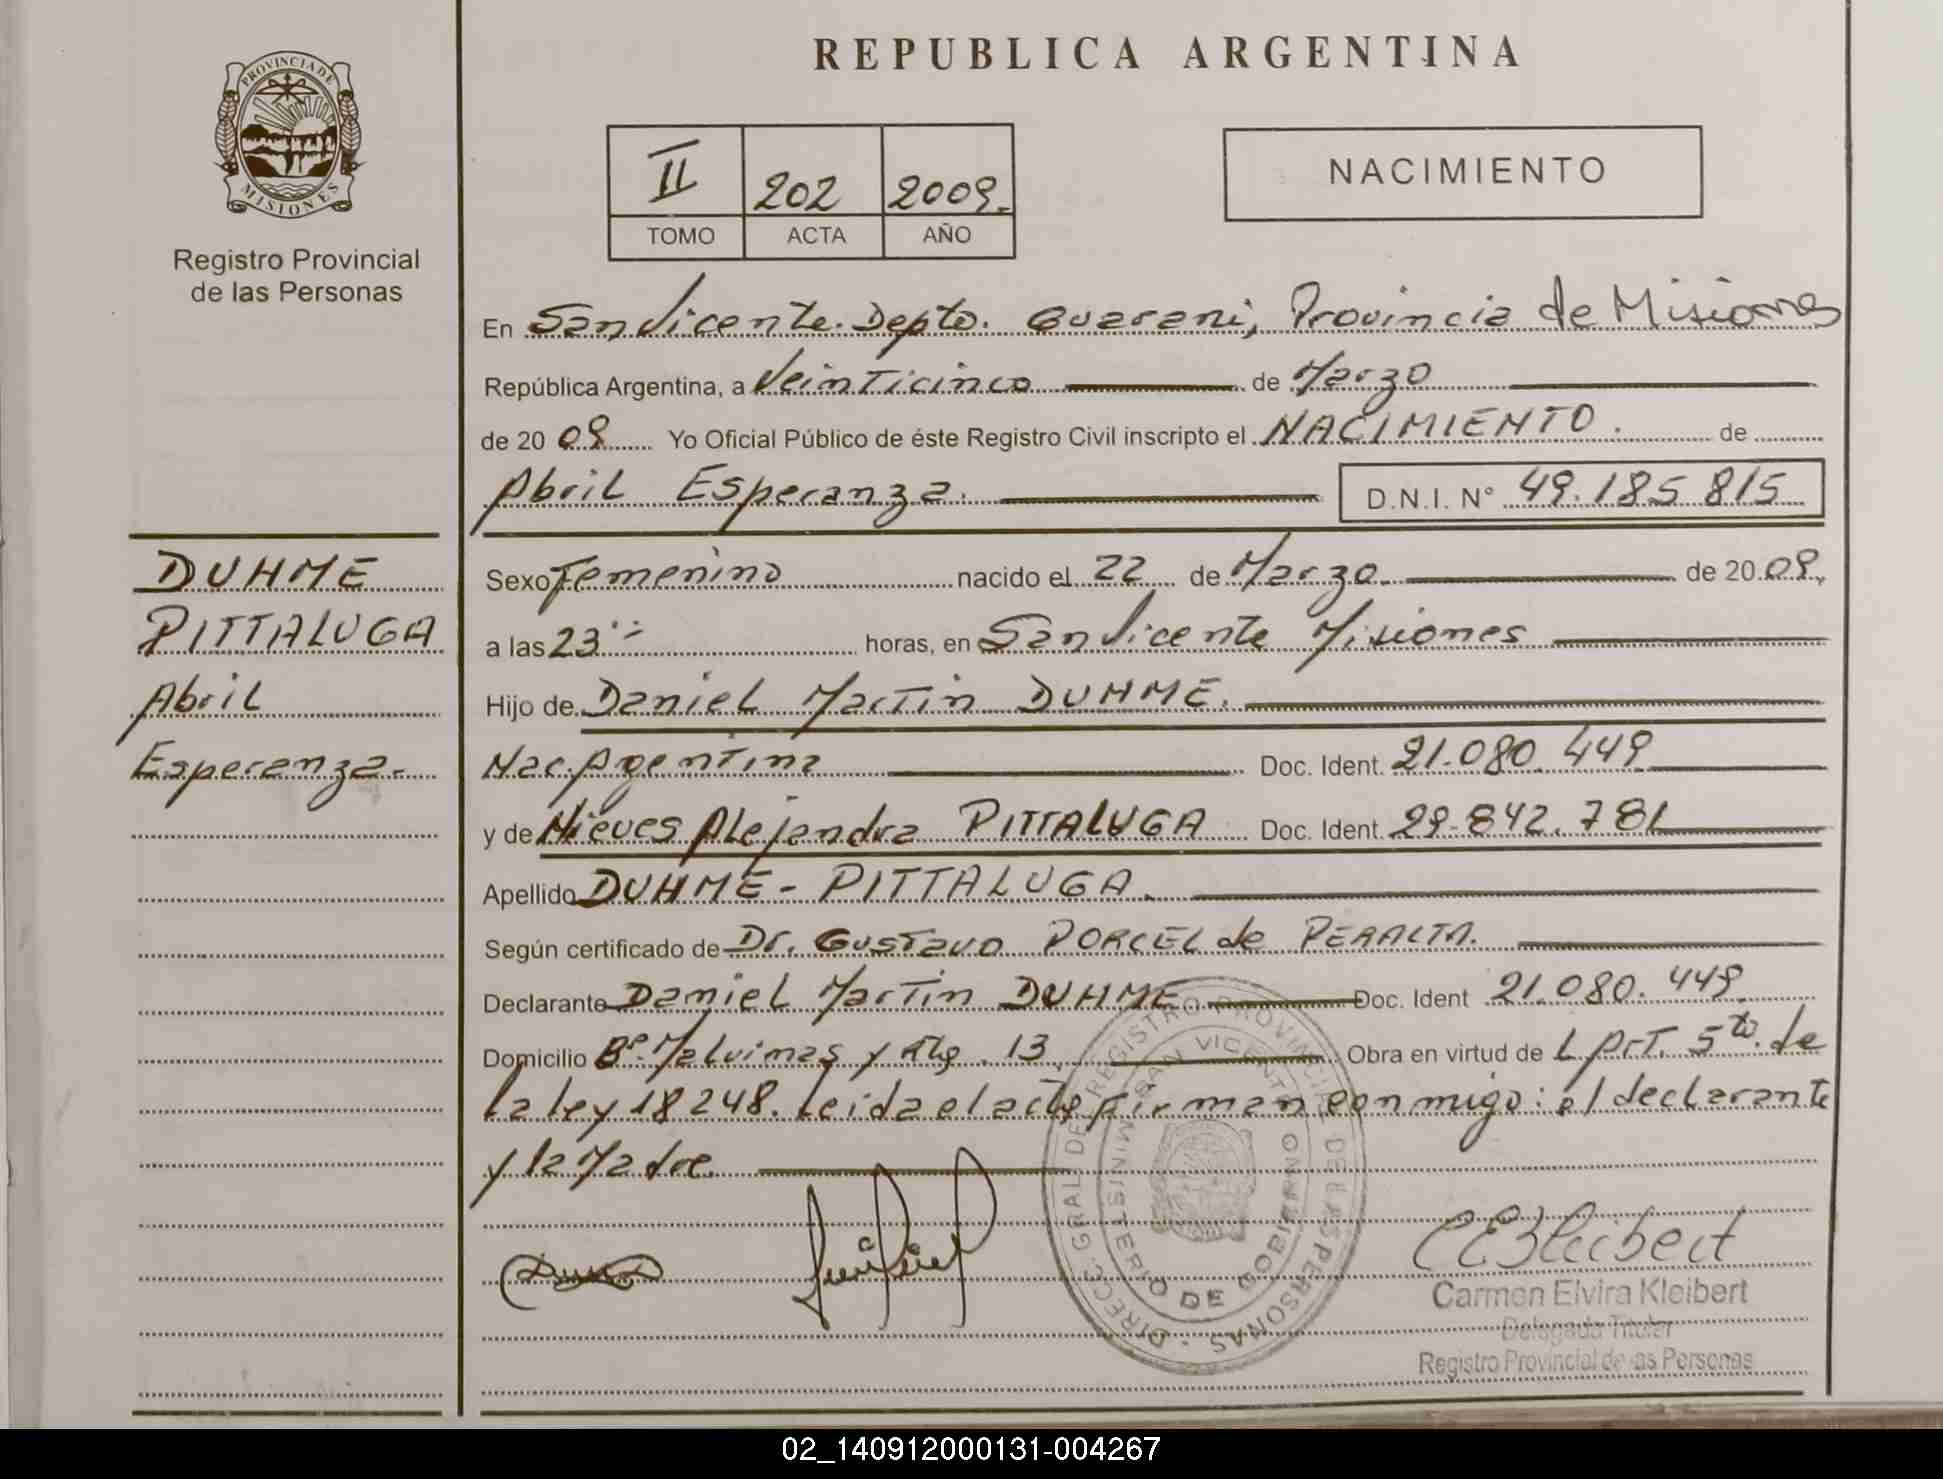 REPUBLICA ARGENTINA
PROVINCIA DE
MISIONES
Registro Provincial
de las Personas
II 202 2009.
TOMO ACTA AÑO
NACIMIENTO
En San Vicente. Depto. Guarani, Provincia de Misiones
República Argentina, a Veinticinco de Marzo
de 20 09 Yo Oficial Público de éste Registro Civil inscripto el NACIMIENTO. de
Abril Esperanza. D.N.I. N° 49.185 815
DUHME
PITTALUGA
Abril
Esperanza.-
Sexo Femenino nacido el 22 de Marzo. de 20 09.
a las 23 horas, en San Vicente Misiones
Hijo de Daniel Martin DUHME.
Nac. Agentina Doc. Ident. 21.080.449
y de Nieves Alejandra PITTALUGA Doc. Ident. 29.842.781
Apellido DUHME - PITTALUGA.
Según certificado de Dr. Gustavo PORCEL de PERALTA.
Declarante Daniel Martin DUHME Doc. Ident 21.080.449.
Domicilio B° Malvinas y 13 Obra en virtud de L Art. 5to. de
la ley 18248. Leida el acta firman conmigo: el declarante
y la Madre.
DIREC. GRAL. DE REGISTRO PROVINCIAL DE LAS PERSONAS
MINISTERIO DE GOBIERNO
SAN VICENTE
CEKleibert
Carmen Elvira Kleibert
Delegada Titular
Registro Provincial de las Personas
02_140912000131-004267